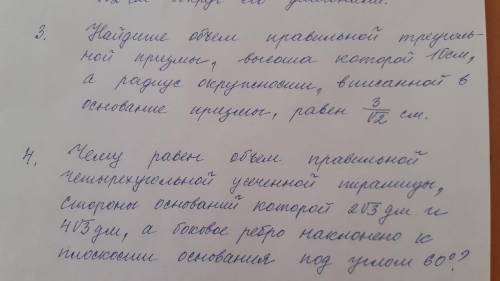 3. Найдите объем правильной треуголь-
ной призмы, высота которой 10см,
а радиус окружности, вписанной в
основание призмы, равен 3/√2 см.
4. Чему равен объем правильной
четырехугольной усеченной пирамиды,
стороны оснований которой 2√3 дм и
4√3 дм, а боковое ребро наклонено к
плоскости основания под углом 60°?